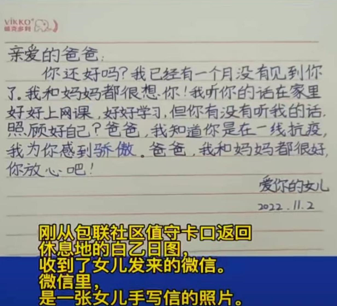 ViKKO
亲爱的爸爸:
你还好吗?我已经有一个月没有见到你
了.我和妈妈都很想你!我听你的话在家里
好好上网课,好好学习,但你有没有听我的话,
照顾好自己?爸爸,我知道你是在一线抗疫,
我为你感到骄傲.爸爸,我和妈妈都很好,
你放心吧!
爱你的女儿
2022.11.2
刚从包联社区值守卡口返回
休息地的白乙日图,
收到了女儿发来的微信。
微信里,
是一张女儿手写信的照片。